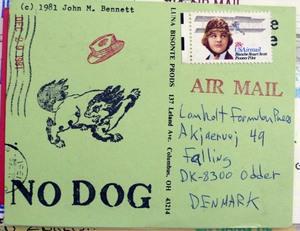 (c) 1981 John M. Bennett
NO DOG
LUNA BISONTE PRODS
137 Leland Ave. Columbus, OH 43214
USAirmail
Blanche Stuart Scott
Pioneer Pilot
AIR MAIL
Lomholt Formular Press
Akjaervej 49
Falling
DK-8300 Odder
DENMARK